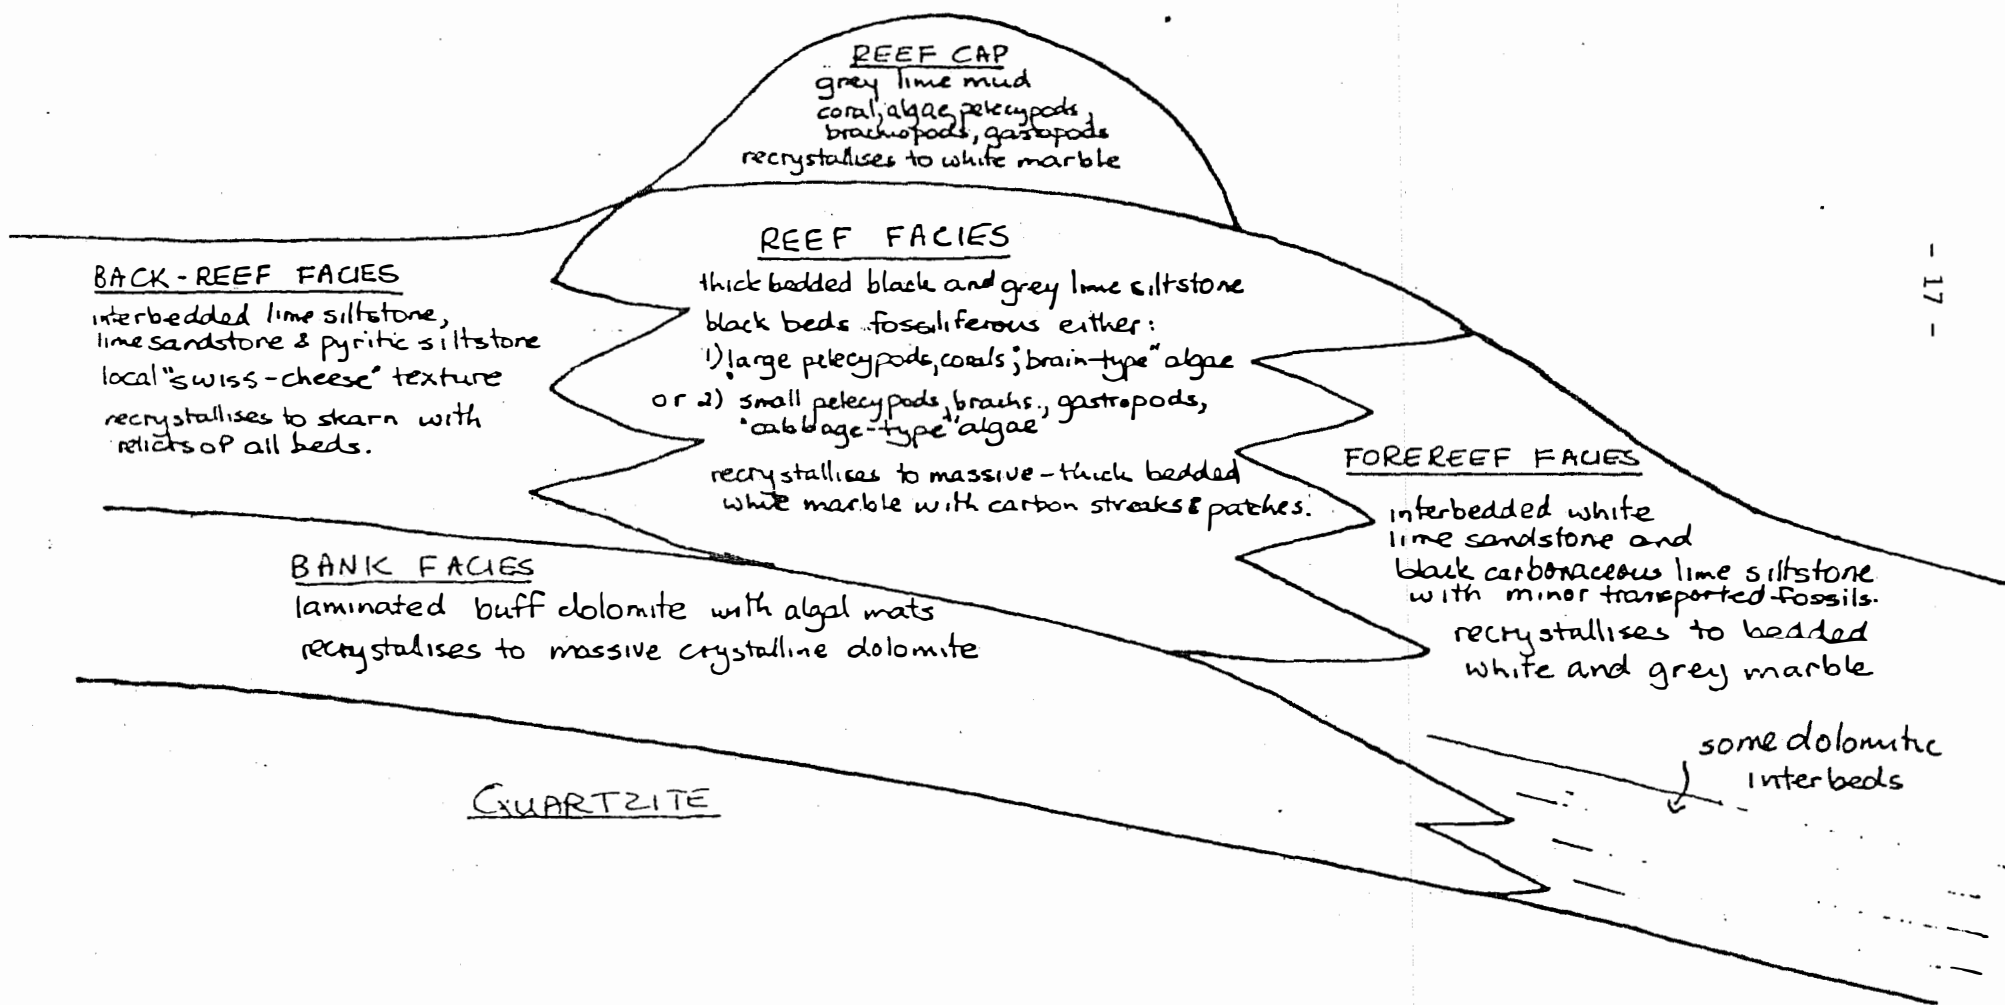 REEF CAP
grey lime mud
coral, algae, pelecypods,
brachiopods, gastopods
recrystallises to white marble
- 17 -
REEF FACIES
thick bedded black and grey lime siltstone
black beds fossiliferous either:
1) large pelecypods, corals, "brain-type" algae
or 2) small pelecypods, brachs., gastropods,
"cabbage-type" algae
recrystallises to massive-thick bedded
white marble with carbon streaks & patches.
BACK-REEF FACIES
interbedded lime siltstone,
lime sandstone & pyritic siltstone
local "swiss-cheese" texture
recrystallises to skarn with
relicts of all beds.
FOREREEF FACIES
interbedded white
lime sandstone and
black carbonaceous lime siltstone
with minor transported fossils.
recrystallises to bedded
white and grey marble
BANK FACIES
laminated buff dolomite with algal mats
recrystalises to massive crystalline dolomite
some dolomitic
interbeds
QUARTZITE